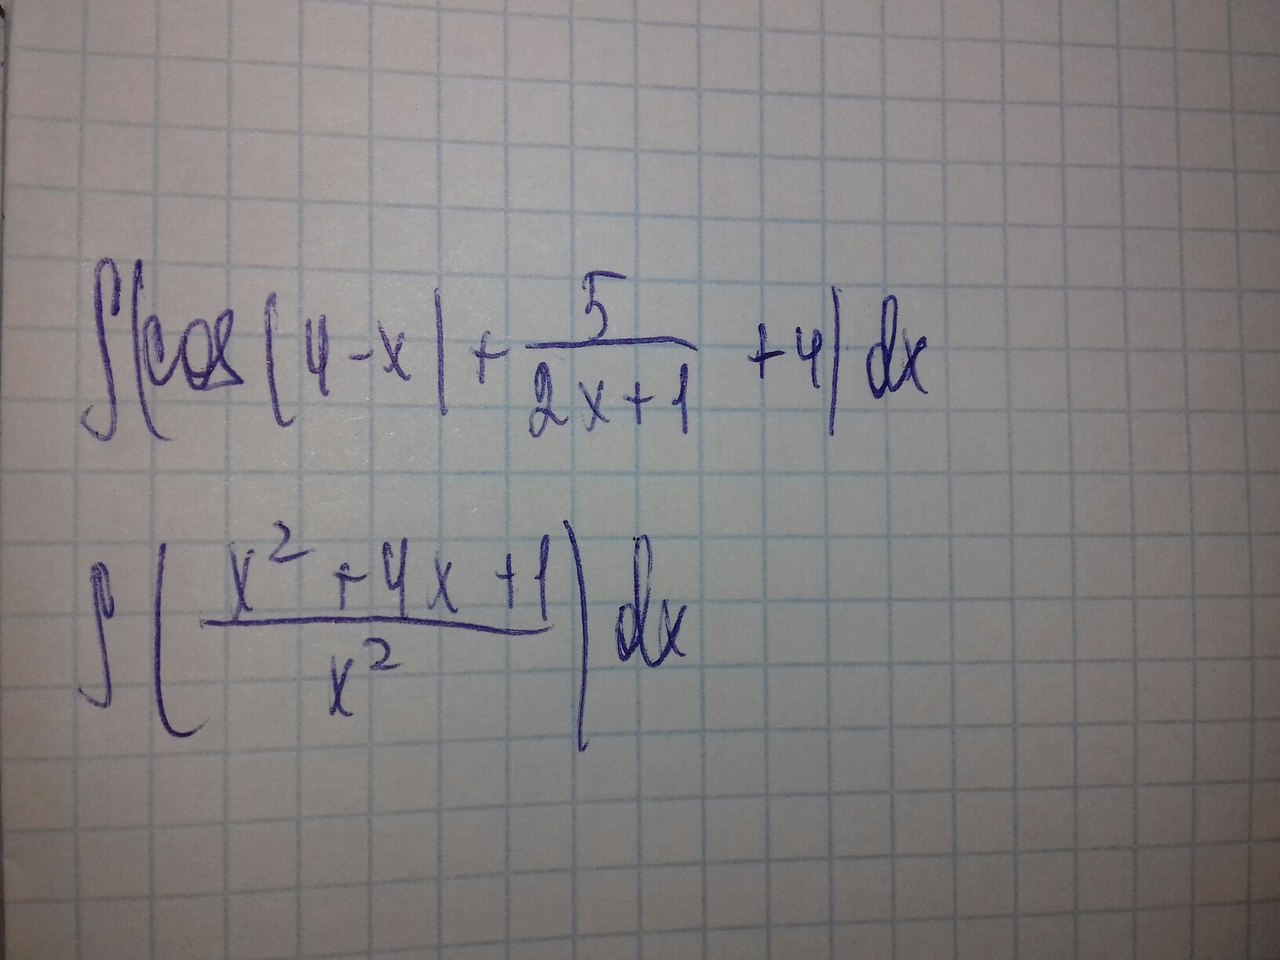 ∫(cos(4-x)+\frac{5}{2x+1}+4)dx
∫(\frac{x^2+4x+1}{x^2})dx